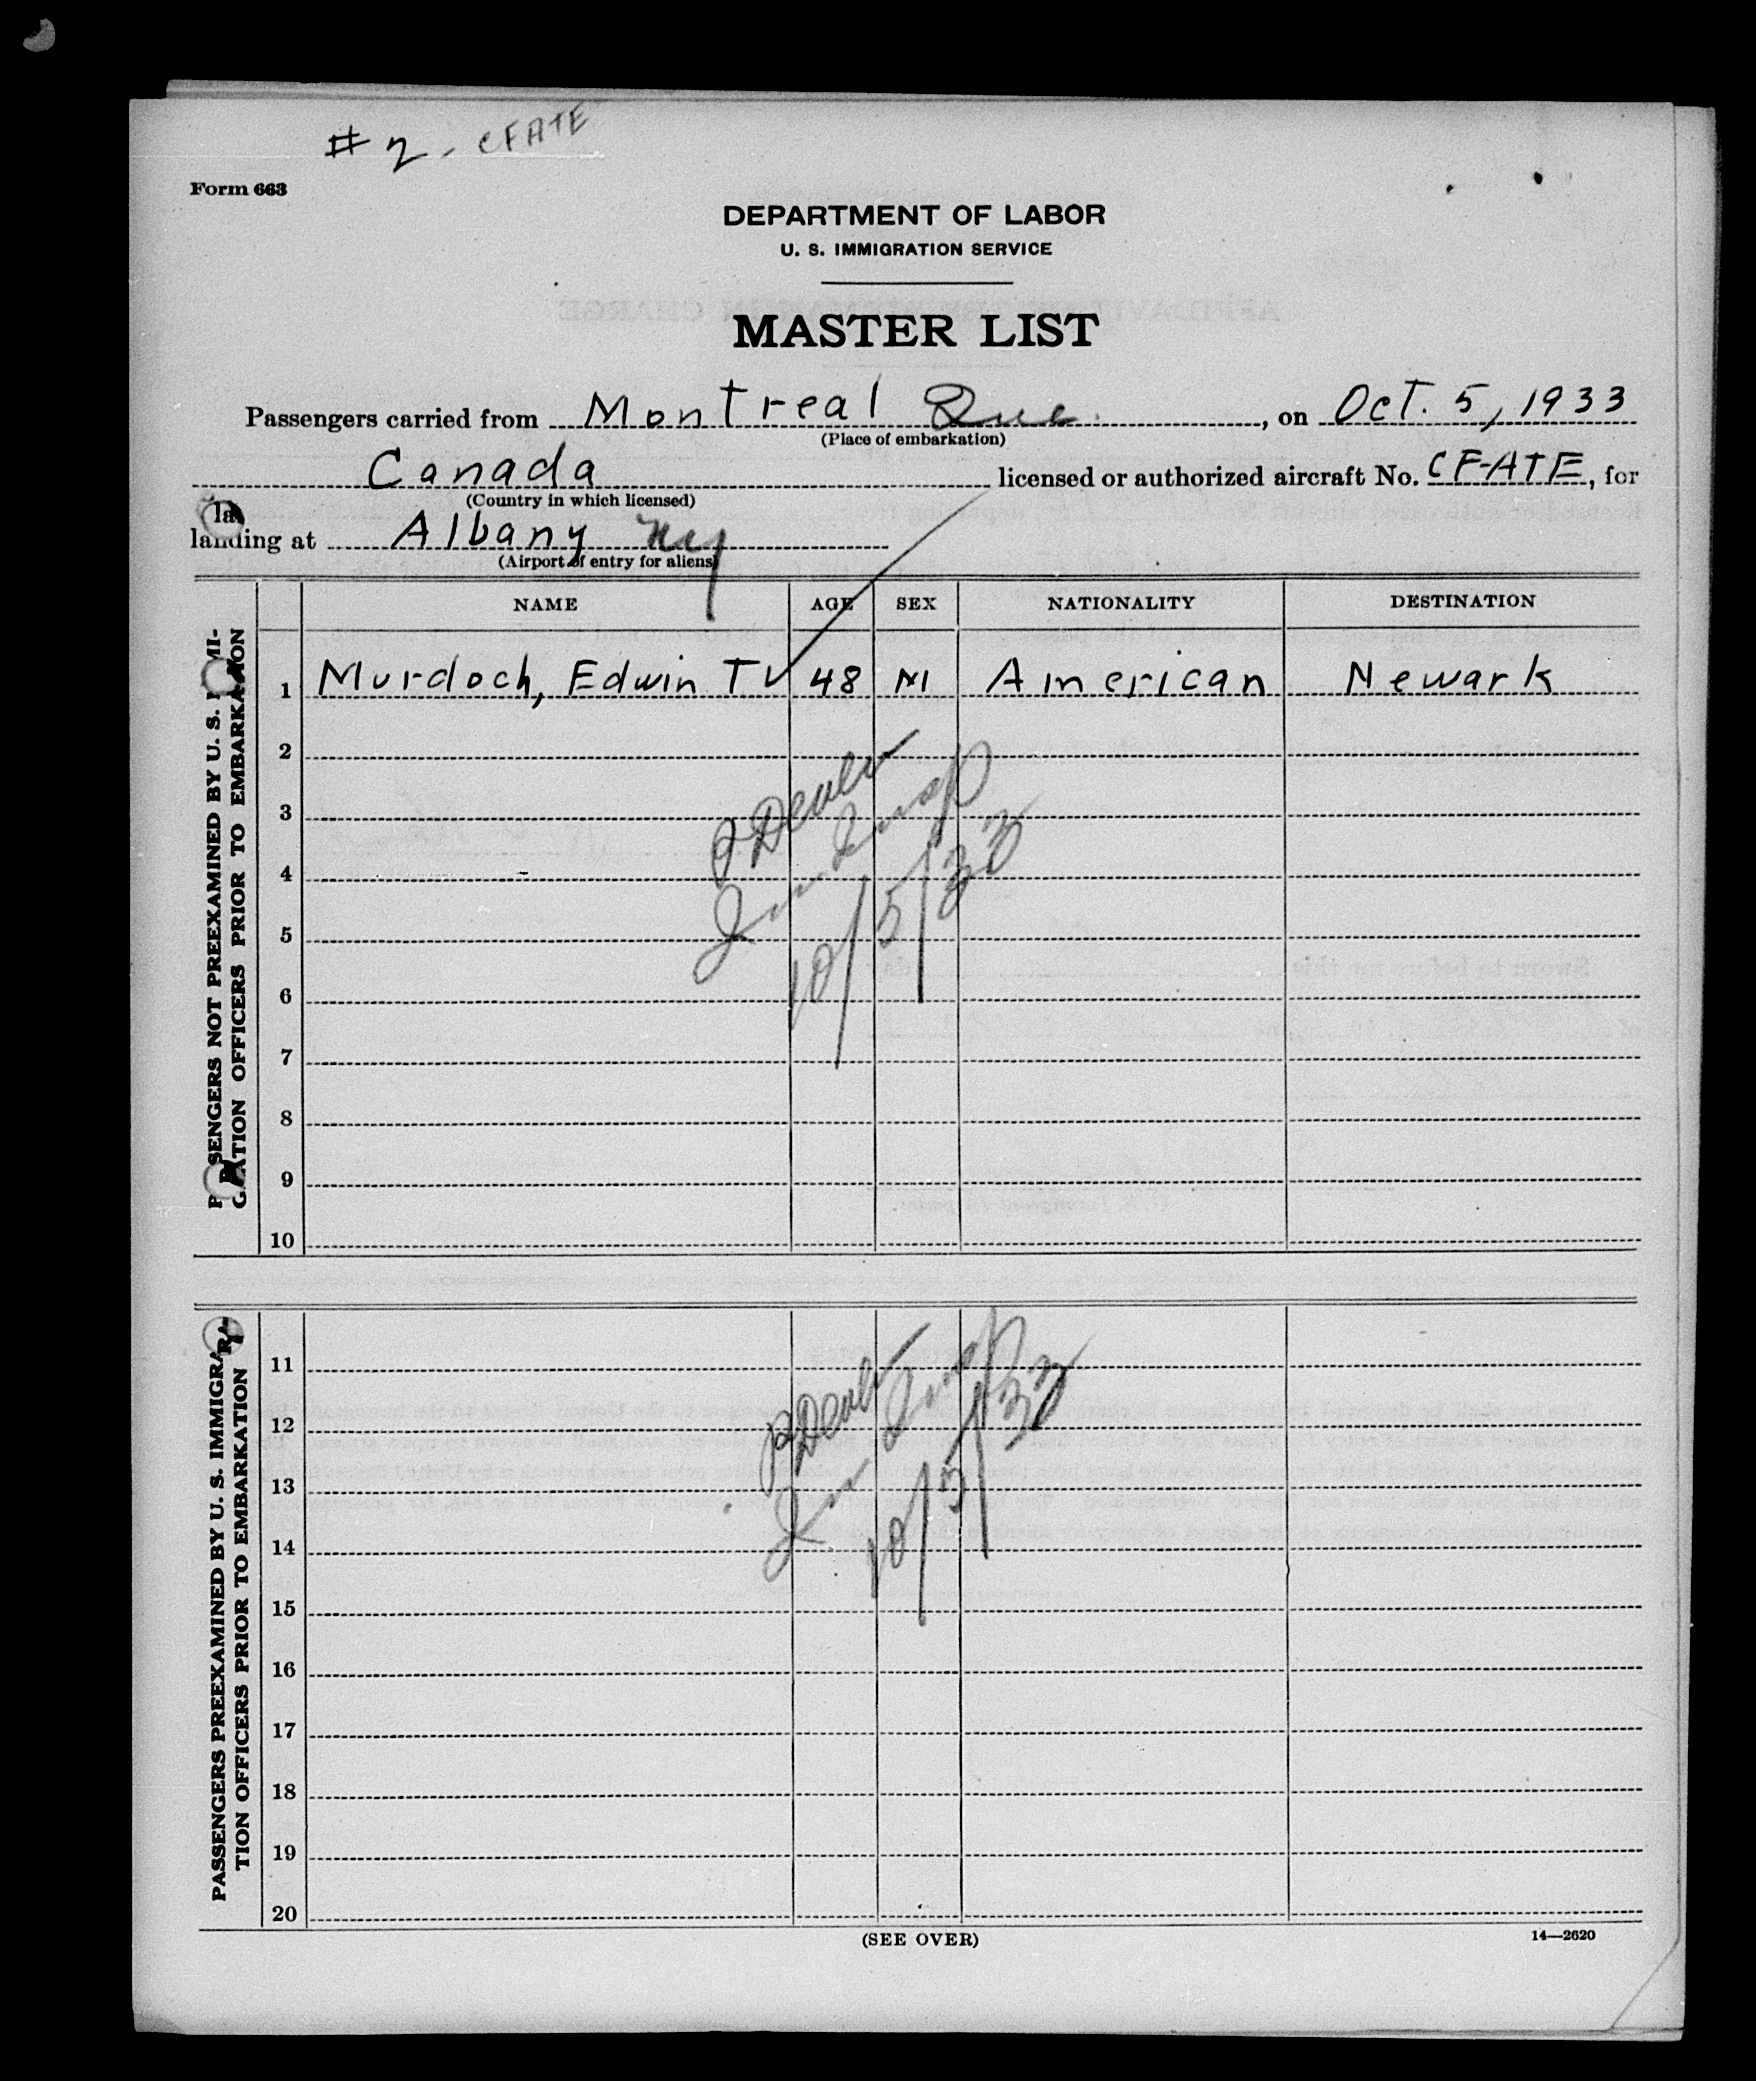 #2 - CFATE
Form 663
DEPARTMENT OF LABOR
U. S. IMMIGRATION SERVICE
MASTER LIST
Passengers carried from Montreal Que. , on Oct. 5, 1933
(Place of embarkation)
Canada licensed or authorized aircraft No. CF-ATE, for
(Country in which licensed)
landing at Albany NY
(Airport of entry for aliens)
NAME AGE SEX NATIONALITY DESTINATION
PASSENGERS NOT PREEXAMINED BY U. S. IMMI-
GRATION OFFICERS PRIOR TO EMBARKATION
1 Murdoch, Edwin T 48 M American Newark
2
3
4
5
6
7
8
9
10
Imm Insp
10/5/33
PASSENGERS PREEXAMINED BY U. S. IMMIGRA-
TION OFFICERS PRIOR TO EMBARKATION
11
12
13
14
15
16
17
18
19
20
Imm Insp
10/5/33
(SEE OVER)
14—2620